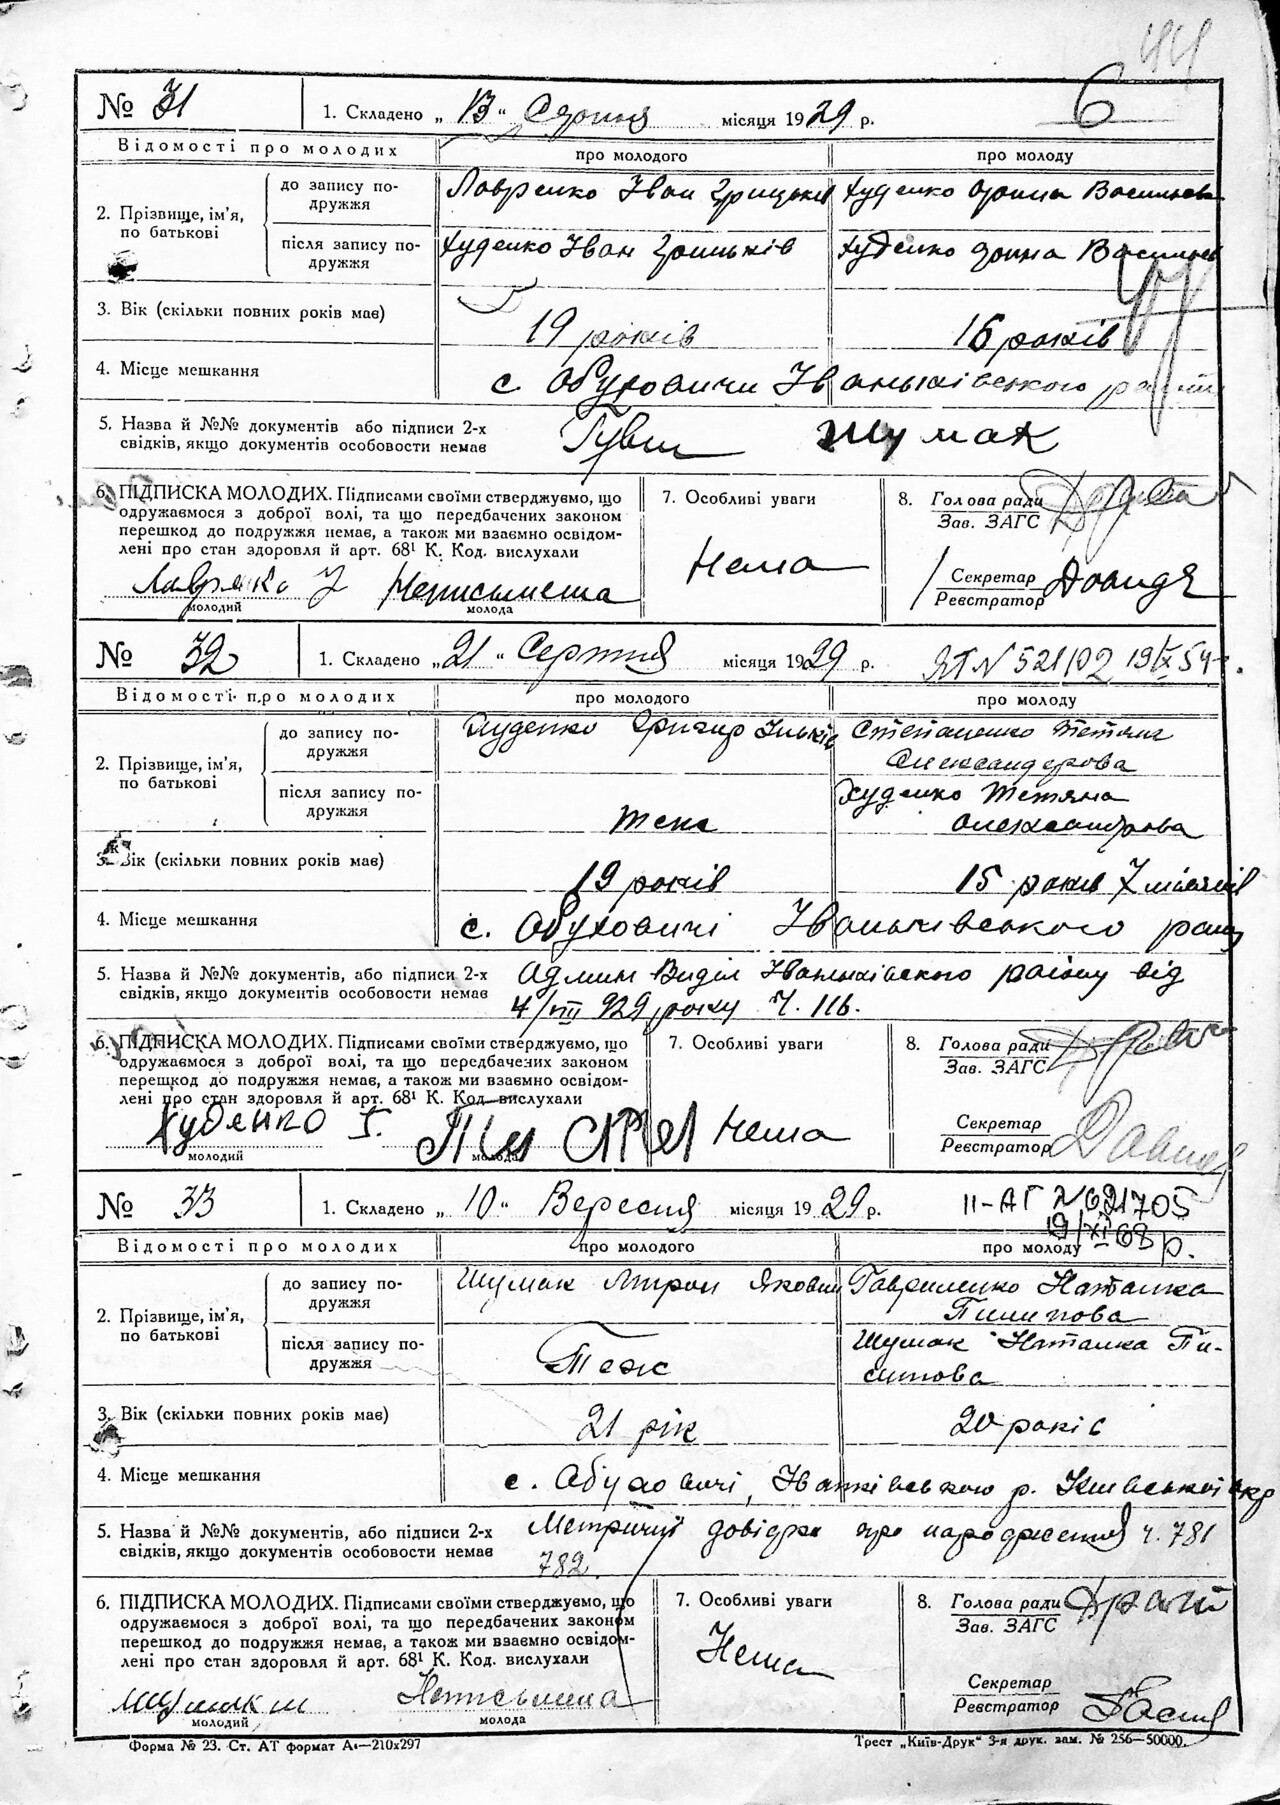 44
№ 31 1. Складено „13“ Серпня місяця 1929 р. 6
Відомості про молодих про молодого про молоду
2. Прізвище, ім'я, по батькові
до запису подружжя Лавренко Іван Грицьків Худенко Орина Васильева
після запису подружжя Худенко Іван Грицьків Худенко Орина Васильев
3. Вік (скільки повних років має) 19 років 16 років
4. Місце мешкання с. Обуховичи Іваньківського району
5. Назва й №№ документів або підписи 2-х
свідків, якщо документів особовости немає Шумак
6. ПІДПИСКА МОЛОДИХ. Підписами своїми стверджуємо, що
одружаємося з доброї волі, та що передбачених законом
перешкод до подружжя немає, а також ми взаємно освідом-
лені про стан здоровля й арт. 68¹ К. Код. вислухали
Лавренко І Неписьмена
молодий молода
7. Особливі уваги
Нема
8. Голова ради
Зав. ЗАГС
Секретар
Реєстратор
№ 32 1. Складено „21“ Серпня місяця 1929 р. ЯТ N 521102 19/IX 54 г.
Відомості про молодих про молодого про молоду
2. Прізвище, ім'я, по батькові
до запису подружжя Худенко Григир Ільків Степаненко Тетяна
Олександрова
після запису подружжя Теж Худенко Тетяна
Олександрова
3. Вік (скільки повних років має) 19 років 15 років 7 місяців
4. Місце мешкання с. Обуховичі Іваньківського району
5. Назва й №№ документів, або підписи 2-х Админ Виділ Іваньківского району від
свідків, якщо документів особовости немає 4/VIII 929 року Ч. 116.
6. ПІДПИСКА МОЛОДИХ. Підписами своїми стверджуємо, що
одружаємося з доброї волі, та що передбачених законом
перешкод до подружжя немає, а також ми взаємно освідом-
лені про стан здоровля й арт. 68¹ К. Код. вислухали
Худенко Г.
молодий молода
7. Особливі уваги
Нема
8. Голова ради
Зав. ЗАГС
Секретар
Реєстратор
№ 33 1. Складено „10“ Вересня місяця 1929 р. II-АГ N 621705
19/XI 68 р.
Відомості про молодих про молодого про молоду
2. Прізвище, ім'я, по батькові
до запису подружжя Шумак Мирон Якович Гавриленко Наталка
Пилипова
після запису подружжя Теж Шумак Наталка Пи-
липова
3. Вік (скільки повних років має) 21 рік 20 років
4. Місце мешкання с. Обуховичі, Іваньківського р. Київської окр
5. Назва й №№ документів, або підписи 2-х Метричні довідки про народження ч. 781
свідків, якщо документів особовости немає 782.
6. ПІДПИСКА МОЛОДИХ. Підписами своїми стверджуємо, що
одружаємося з доброї волі, та що передбачених законом
перешкод до подружжя немає, а також ми взаємно освідом-
лені про стан здоровля й арт. 68¹ К. Код. вислухали
Неписьмена
молодий молода
7. Особливі уваги
Нема
8. Голова ради
Зав. ЗАГС
Секретар
Реєстратор
Форма № 23. Ст. АТ формат А₄—210х297 Трест „Київ-Друк“ 3-я друк. зам. № 256—50000.